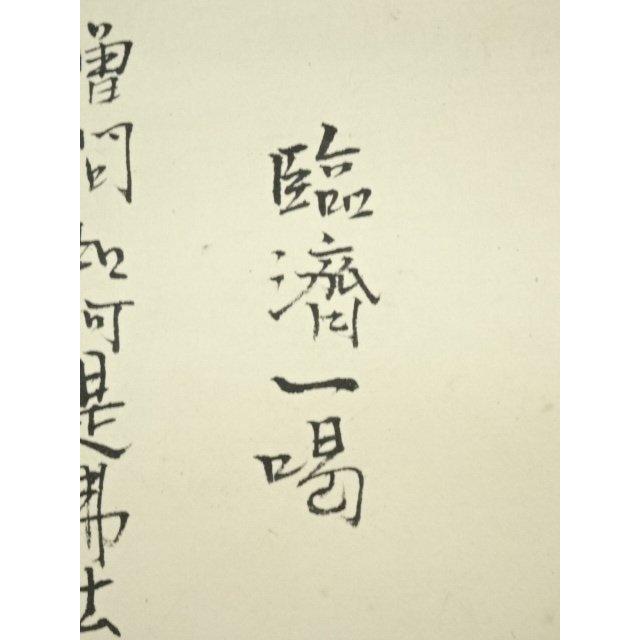 臨濟一喝
僧問如何是佛法